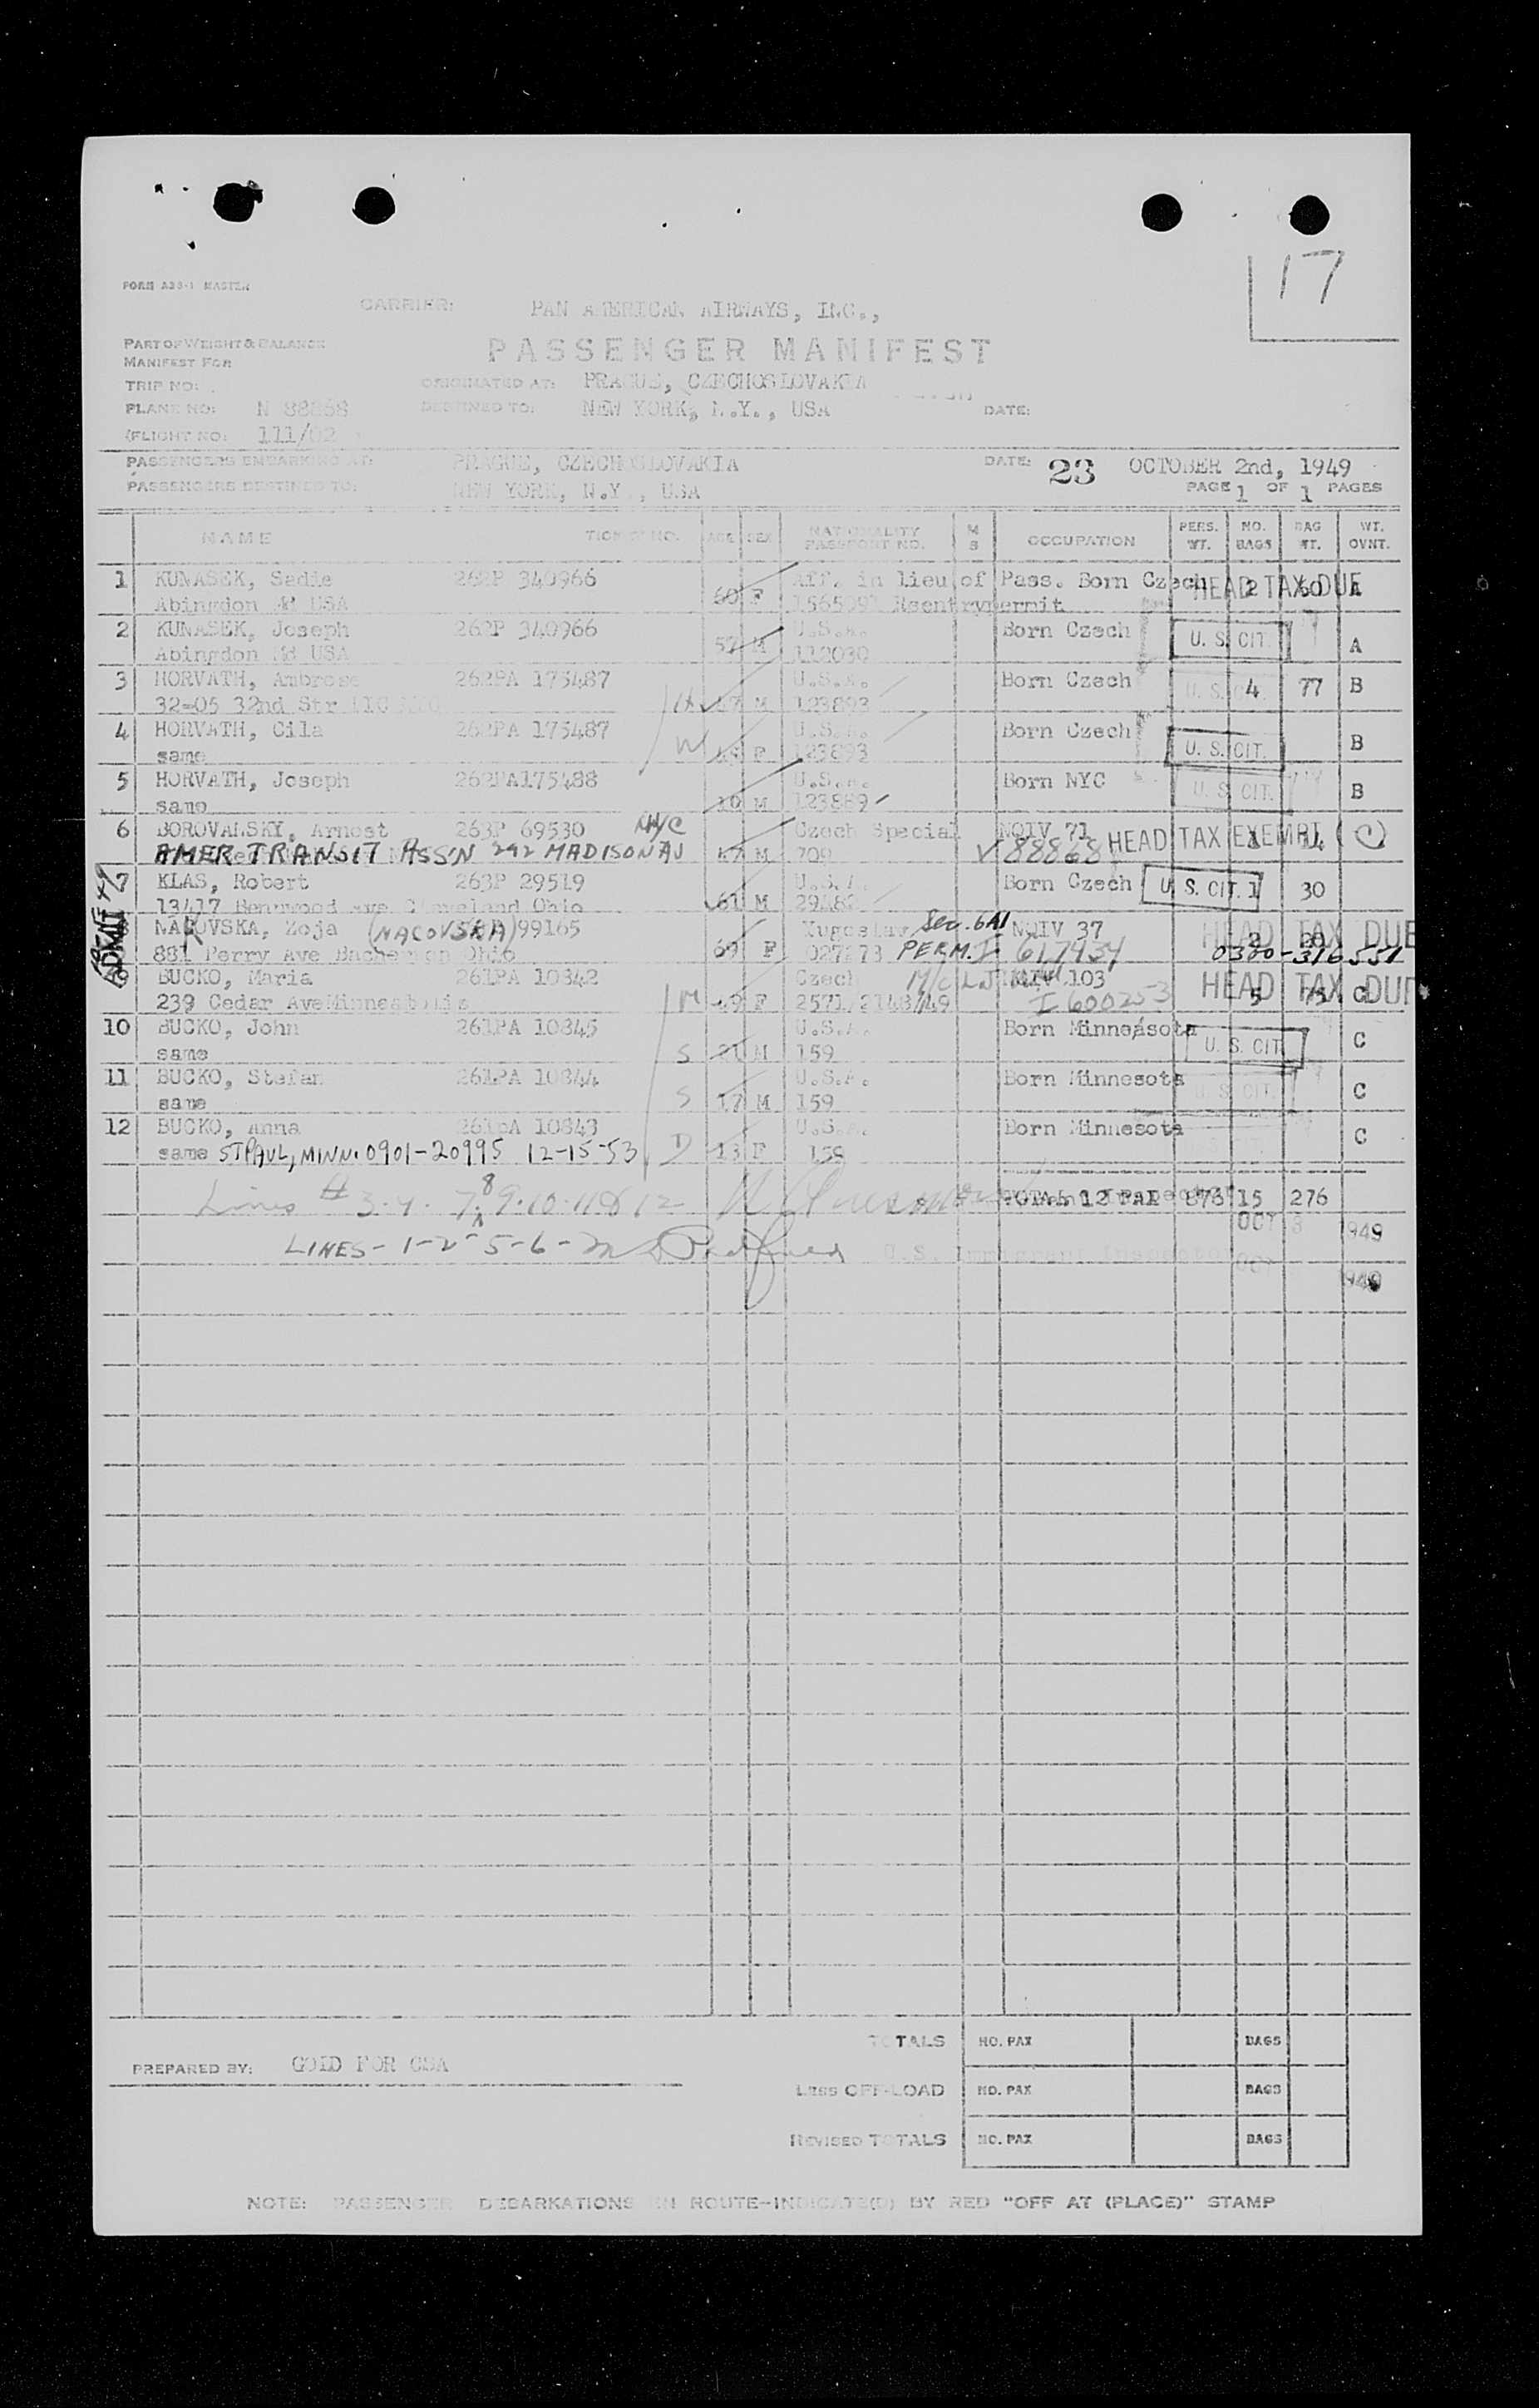 17
FORM A28-1 MASTER
CARRIER: PAN AMERICAN AIRWAYS, INC.,
PART OF WEIGHT & BALANCE
MANIFEST FOR
PASSENGER MANIFEST
TRIP NO: ORIGINATED AT: PRAGUE, CZECHOSLOVAKIA
PLANE NO: N 88868 DESTINED TO: NEW YORK, N.Y., USA DATE:
(FLIGHT NO: 111/02
PASSENGERS EMBARKING AT: PRAGUE, CZECHOSLOVAKIA DATE: 23 OCTOBER 2nd, 1949
PASSENGERS DESTINED TO: NEW YORK, N.Y., USA PAGE 1 OF 1 PAGES
NAME TICKET NO. AGE SEX NATIONALITY PASSPORT NO. M S OCCUPATION PERS. WT. NO. BAGS BAG WT. WT. OVNT.
1 KUNASEK, Sadie 262P 340966 60 F Aff. in lieu of Pass. Born Czech HEAD TAX DUE 2 60 A
Abingdon Md USA Reentrypermit
2 KUNASEK, Joseph 262P 340966 M U.S.A. Born Czech U. S. CIT. A
Abingdon Md USA 112030
3 HORVATH, Ambrose 262PA 175487 M U.S.A. Born Czech U. S. CIT. 4 77 B
32-05 32nd Str 123893
4 HORVATH, Cila 262PA 175487 W F U.S.A. Born Czech U. S. CIT. B
same 123893
5 HORVATH, Joseph 262PA175488 10 M U.S.A. Born NYC U. S. CIT. B
same 123889
6 BOROVANSKY, Arnost 263P 69530 NYC 47 M Czech Special NQIV 71 HEAD TAX EXEMPT (C)
AMER TRANSIT ASS'N 292 MADISON AV 709 V 88868
7 KLAS, Robert 263P 29519 61 M U.S.A. Born Czech U. S. CIT. 1 30
13417 Bennwood Ave Cleveland Ohio 29482
8 NAKOVSKA, Zoja (NACOVSKA) 99165 F Yugoslav Sec. 6A1 NQIV 37 HEAD TAX DUE
881 Perry Ave Ohio PERM. I 617934 0300-316551
9 BUCKO, Maria 261PA 10842 M 49 F Czech 103 HEAD TAX DUE 5 75 C
239 Cedar AveMinneapolis 2571/2148/49 I 600253
10 BUCKO, John 261PA 10845 S 21 M U.S.A. Born Minneasota U. S. CIT. C
same 159
11 BUCKO, Stefan 261PA 10844 S 17 M U.S.A. Born Minnesota U. S. CIT. C
same 159
12 BUCKO, Anna 261PA 10843 D 13 F U.S.A. Born Minnesota C
same ST PAUL, MINN. 0901-20995 12-15-53 159
Lines # 3-4-7-8-9-10-11 & 12 TOTAL 12 PAX 876 15 276
OCT 3 1949
LINES-1-2-5-6- U.S. Immigrant Inspector
OCT 1949
TOTALS NO. PAX BAGS
PREPARED BY: GOLD FOR CSA
Less OFF-LOAD NO. PAX BAGS
REVISED TOTALS NO. PAX BAGS
NOTE: PASSENGER DEBARKATIONS EN ROUTE-INDICATE(D) BY RED "OFF AT (PLACE)" STAMP